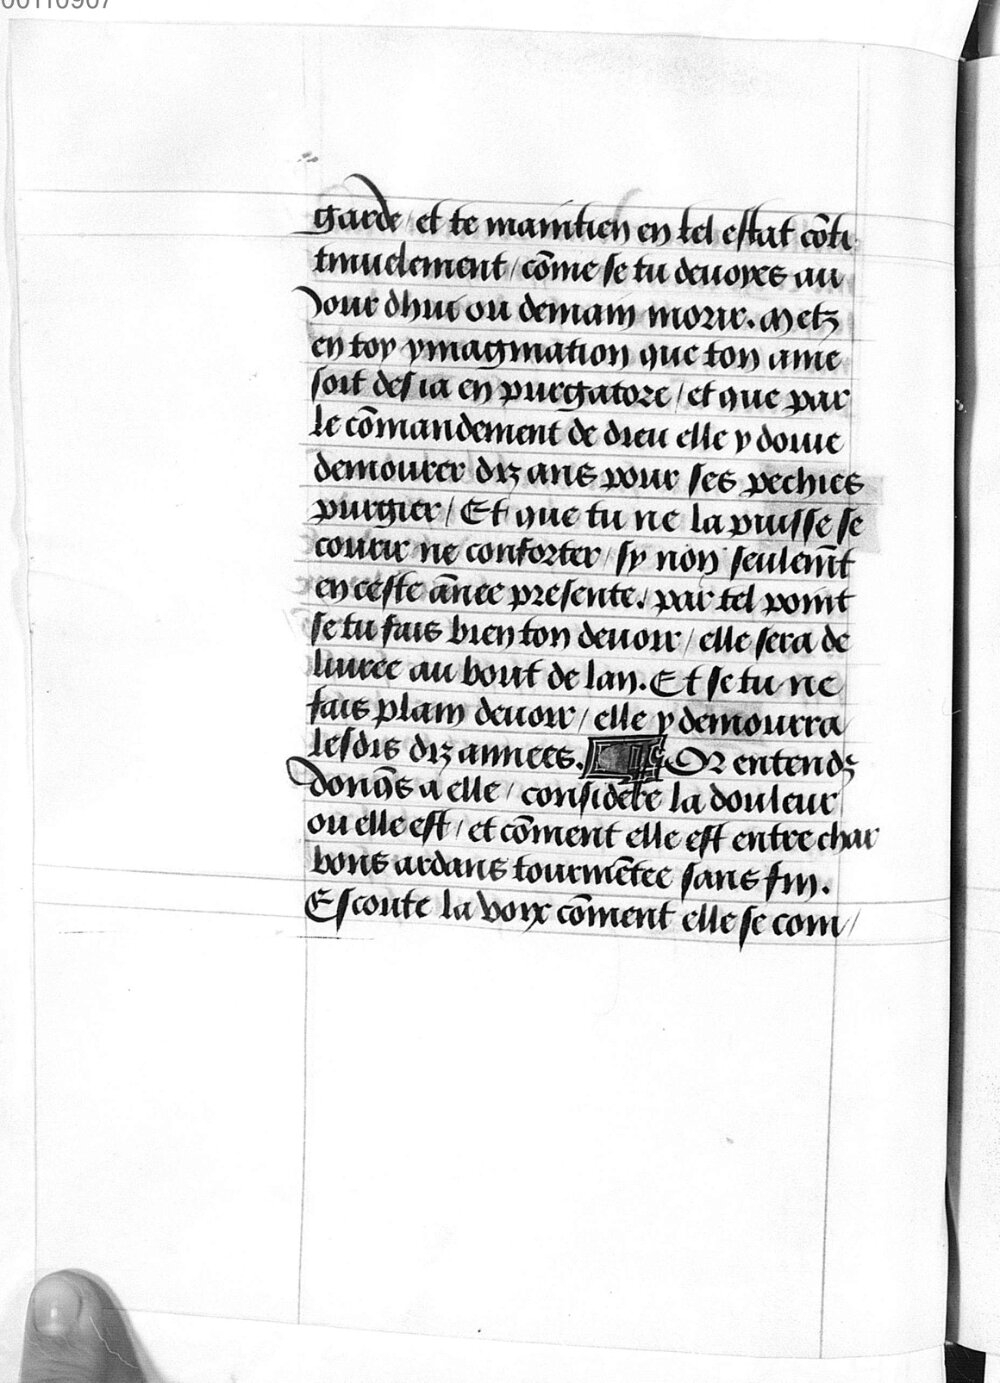 00110907
garde / et te maintien en tel estat cōti
tinuelement / cōme se tu devoyes au
Jour dhui ou demain morir. Metz
en toy ymagination que ton ame
soit des ia en purgatore / et que par
le cōmandement de dieu elle y doiue
demourer diz ans pour ses pechies
purgier / Et que tu ne la puisse se
courir ne conforter / sy non seulemēt
en ceste ānee presente. par tel point
se tu fais bien ton deuoir / elle sera de
liuree au bout de lan. Et se tu ne
fais plain deuoir / elle y demourra
lesdis diz annees. Or entendz
donc̄s a elle / considere la douleur
ou elle est / et cōment elle est entre char
bons ardans tourmētee sans fin.
Escoute la voix cōment elle se com /